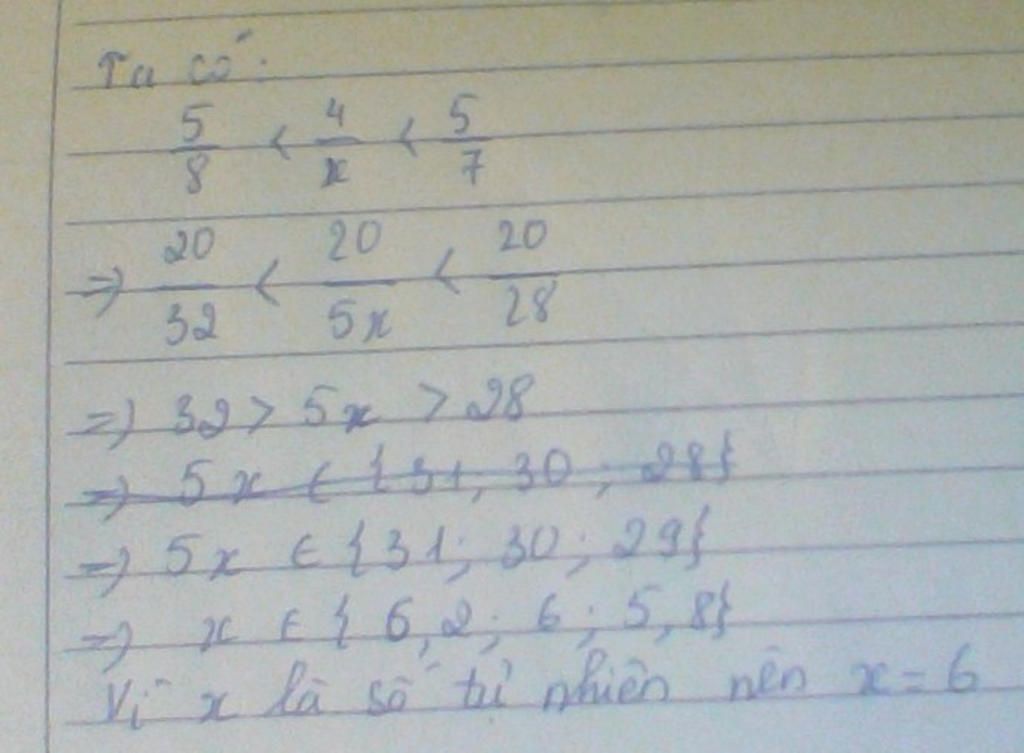 Ta có:
5/8 < 4/x < 5/7
=> 20/32 < 20/5x < 20/28
=> 32 > 5x > 28
=> 5x ∈ {31; 30; 28}
=> 5x ∈ {31; 30; 29}
=> x ∈ {6,2; 6; 5,8}
Vì x là số tự nhiên nên x = 6